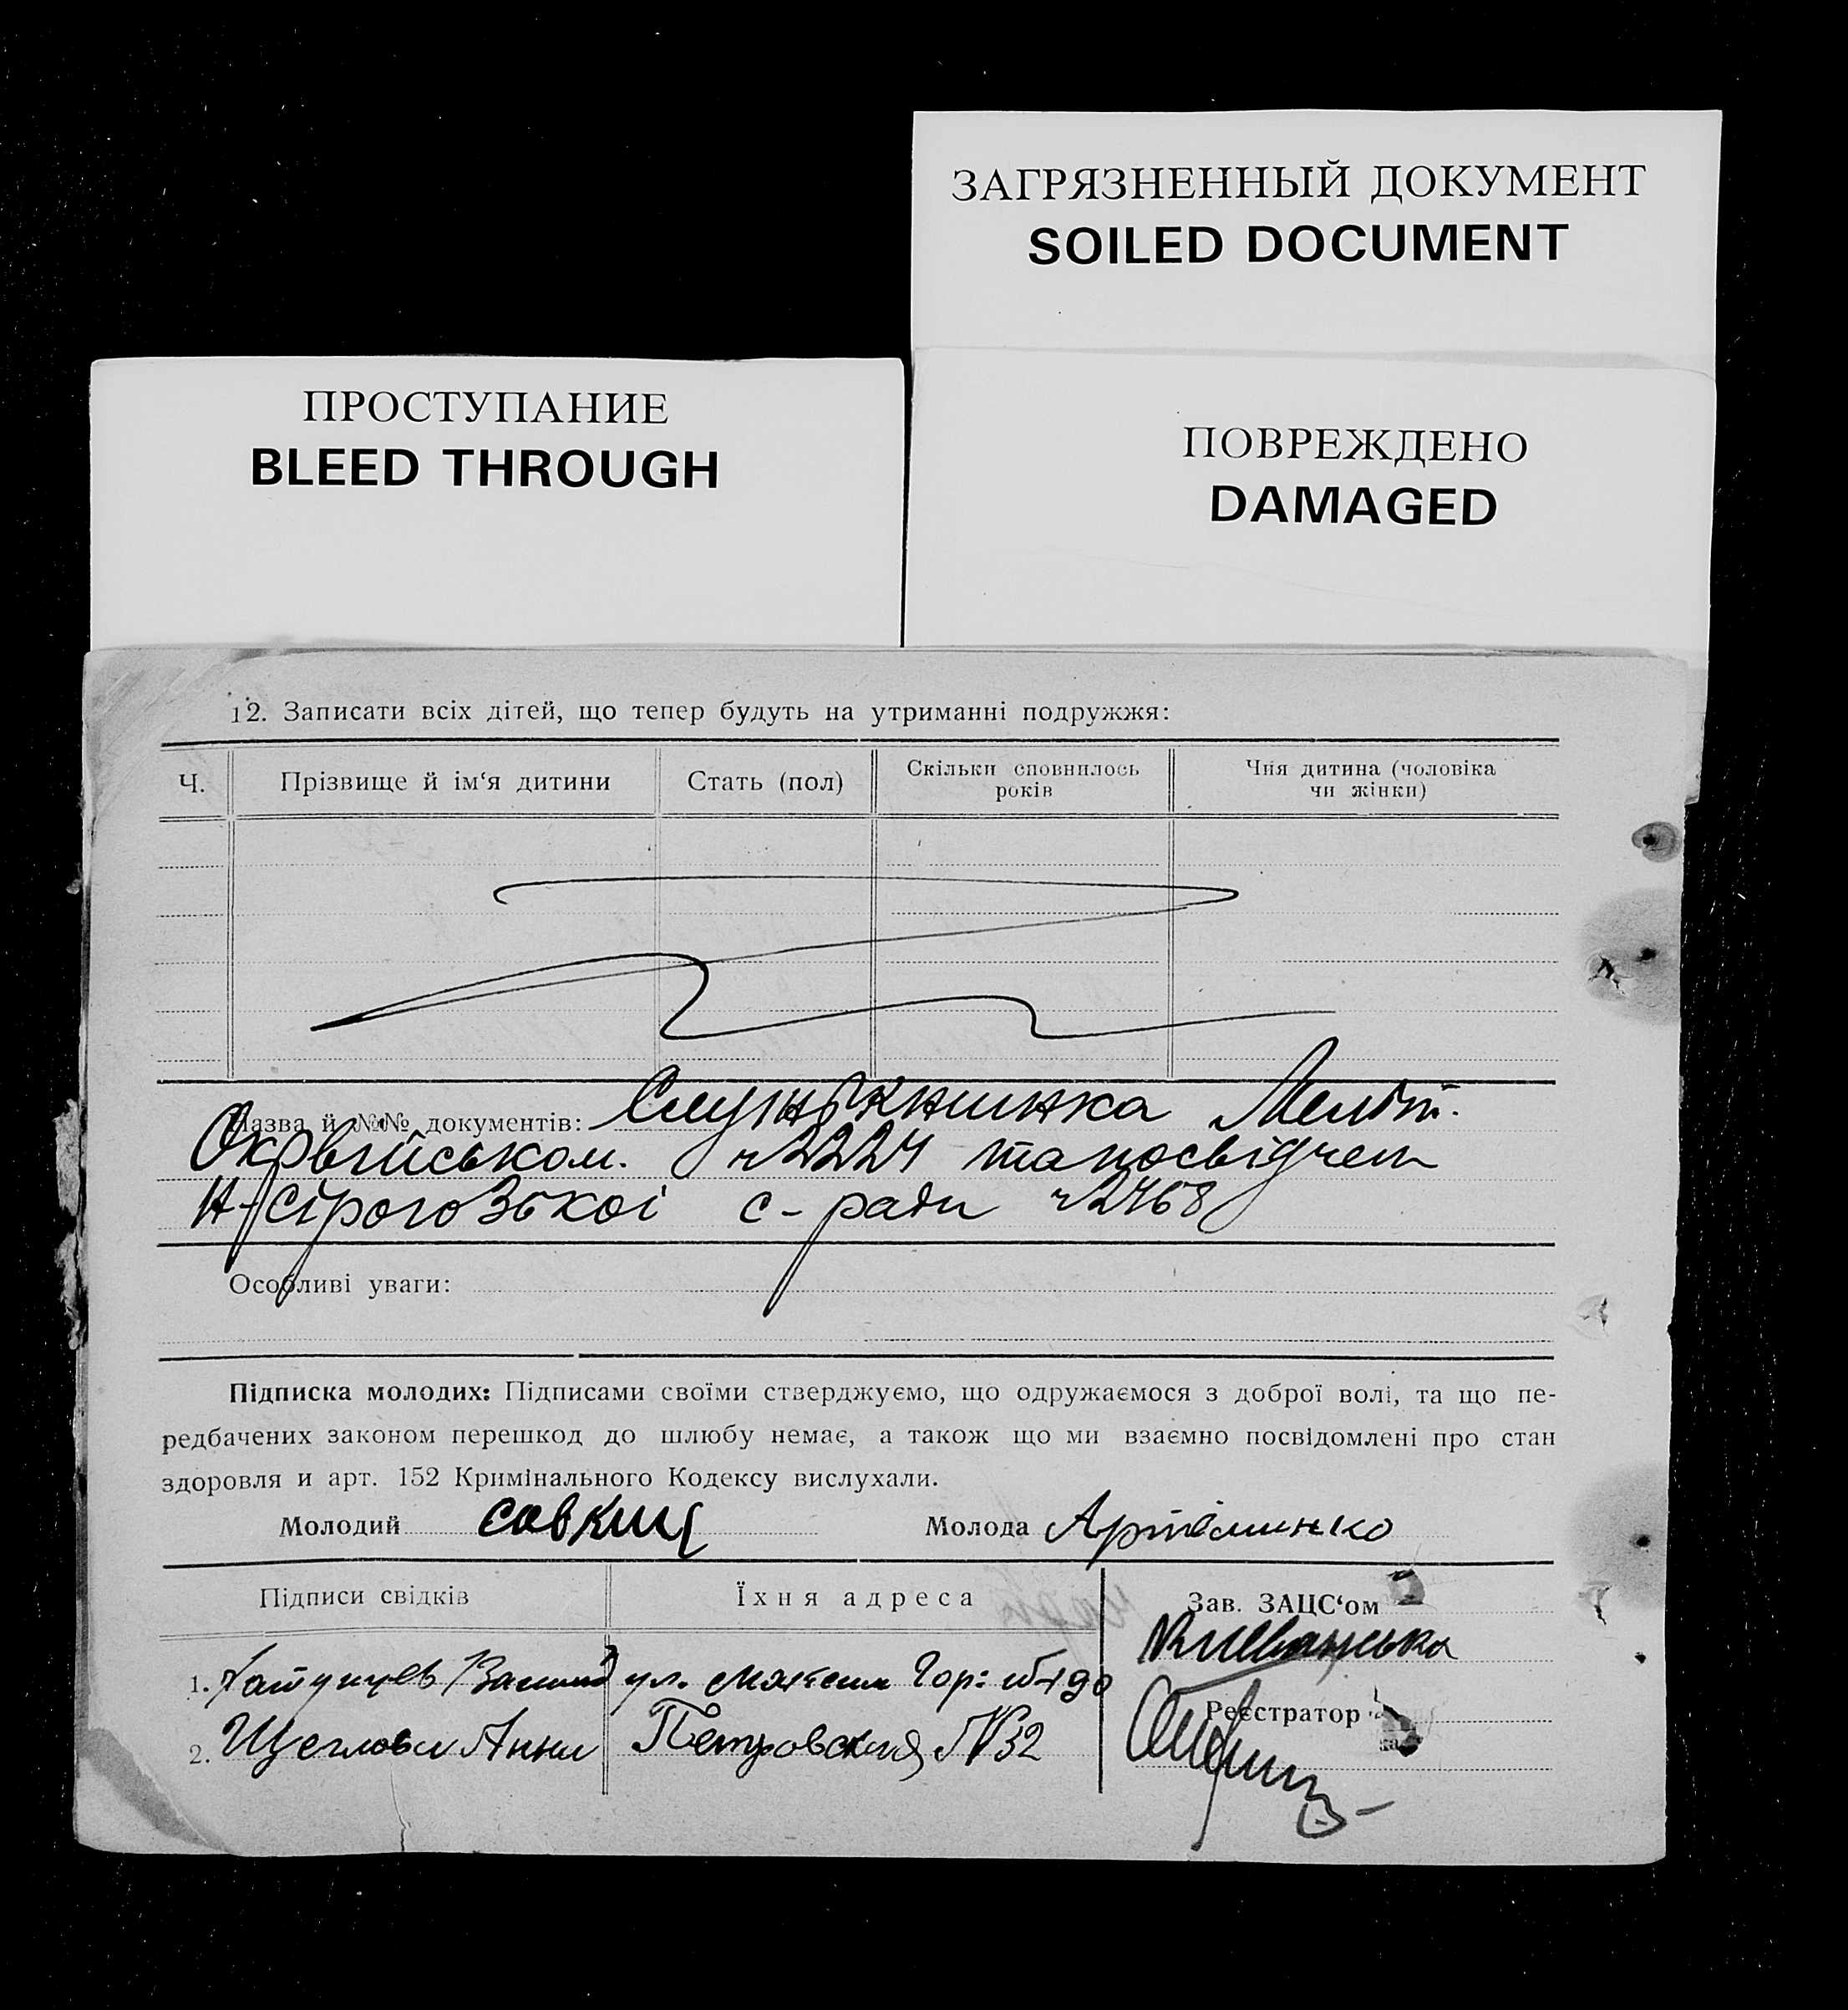 ЗАГРЯЗНЕННЫЙ ДОКУМЕНТ
SOILED DOCUMENT
ПРОСТУПАНИЕ
BLEED THROUGH
ПОВРЕЖДЕНО
DAMAGED
12. Записати всіх дітей, що тепер будуть на утриманні подружжя:
Ч.
Прізвище й ім‘я дитини
Стать (пол)
Скільки сповнилось
років
Чия дитина (чоловіка
чи жінки)
Назва й №№ документів: Служ книжка Меліт.
Окрвійськом. 2224 та посвідчен
Н-Сірогозської с-ради 2468
Особливі уваги:
Підписка молодих: Підписами своїми стверджуємо, що одружаємося з доброї волі, та що пе-
редбачених законом перешкод до шлюбу немає, а також що ми взаємно посвідомлені про стан
здоровля и арт. 152 Кримінального Кодексу вислухали.
Молодий
Молода Артёминко
Підписи свідків
Їхня адреса
Зав. ЗАЦС‘ом
1. ул. Максим Гор:
2. Щеглова Анна Петровская №32
Реєстратор